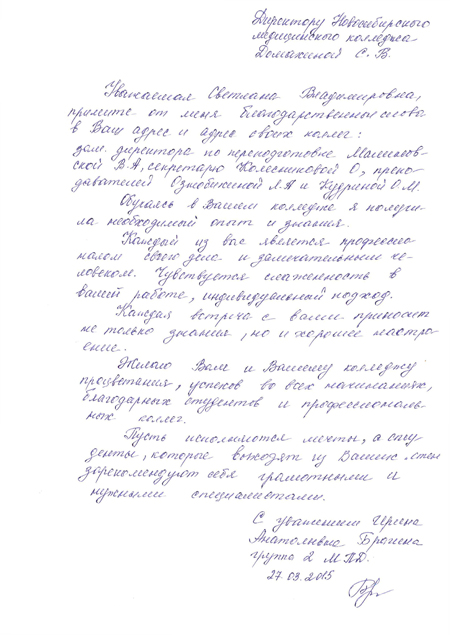 Директору Новосибирского
медицинского колледжа
Домахиной С. В.
Уважаемая Светлана Владимировна,
примите от меня благодарственные слова
в Ваш адрес и адрес своих коллег:
зам. директора по переподготовке
ской В.А, секретарю Колесниковой О, препо-
давателей Ознобихиной Л.А и Кудриной О.М.
Обучаясь в Вашем колледже я получи-
ла необходимый опыт и знания.
Каждый из вас является профессио-
налом своего дела и замечательным че-
ловеком. Чувствуется слаженность в
вашей работе, индивидуальный подход.
Каждая встреча с вами приносит
не только знания, но и хорошее настро-
ение.
Желаю Вам и Вашему колледжу
процветания, успехов во всех начинаниях,
благодарных студентов и профессиональ-
ных коллег.
Пусть исполняются мечты, а сту
денты, которые выходят из Ваших стен
зарекомендуют себя грамотными и
нужными специалистами.
С уважением Ирина
Анатольевна
группа 2 МПД.
27.03.2015